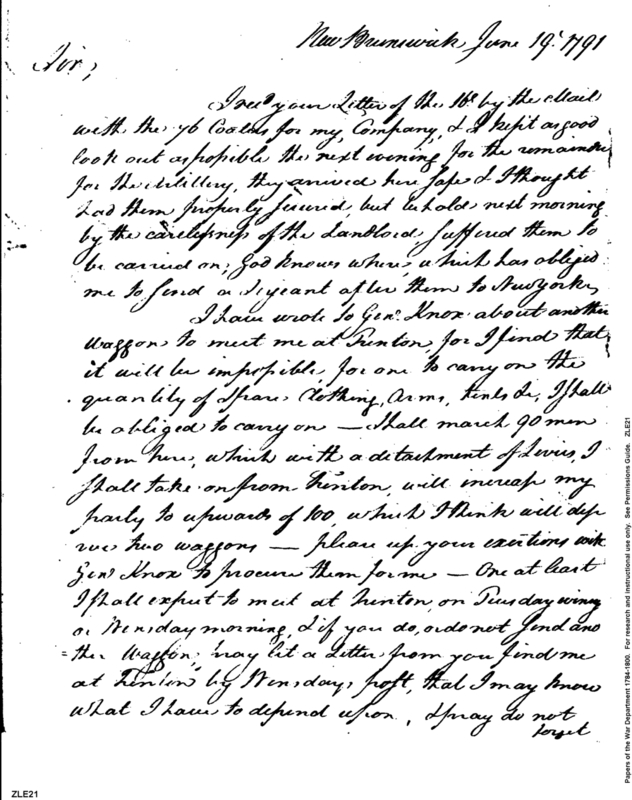 New Brunswick June 19t. 1791
Sir,
I recd your Letter of the 16t. by the Mail
with the 76 Coats for my Company, & I kept as good
look out as possible the next evening for the remainder
for the Artillery, they arrived here safe & I thought
had them properly secured, but behold next morning
by the carelessness of the Landlord suffered them to
be carried on, God knows where, which has obliged
me to send a Serjeant after them to New York,
I have wrote to Genl. Knox about another
Waggon to meet me at Trenton, for I find that
it will be impossible for one to carry on the
quantity of Spare Clothing, Arms, tents &c, I shall
be obliged to carry on — shall march 90 men
from here, which with a detachment of I
shall take on from Trenton, will increase my
party to upwards of 100, which I think will dese
rve two waggons — please use your exertions with
Genl Knox to procure them for me — One at least
I shall expect to meet at Trenton, on Tuesday
or Wensday morning, & if you do, or do not send ano
=ther Waggon, pray let a Letter from you find me
at Trenton by Wensdays post, that I may know
what I have to depend upon, & pray do not
forget
ZLE21
Papers of the War Department 1784-1800. For research and instructional use only. See Permissions Guide. ZLE21